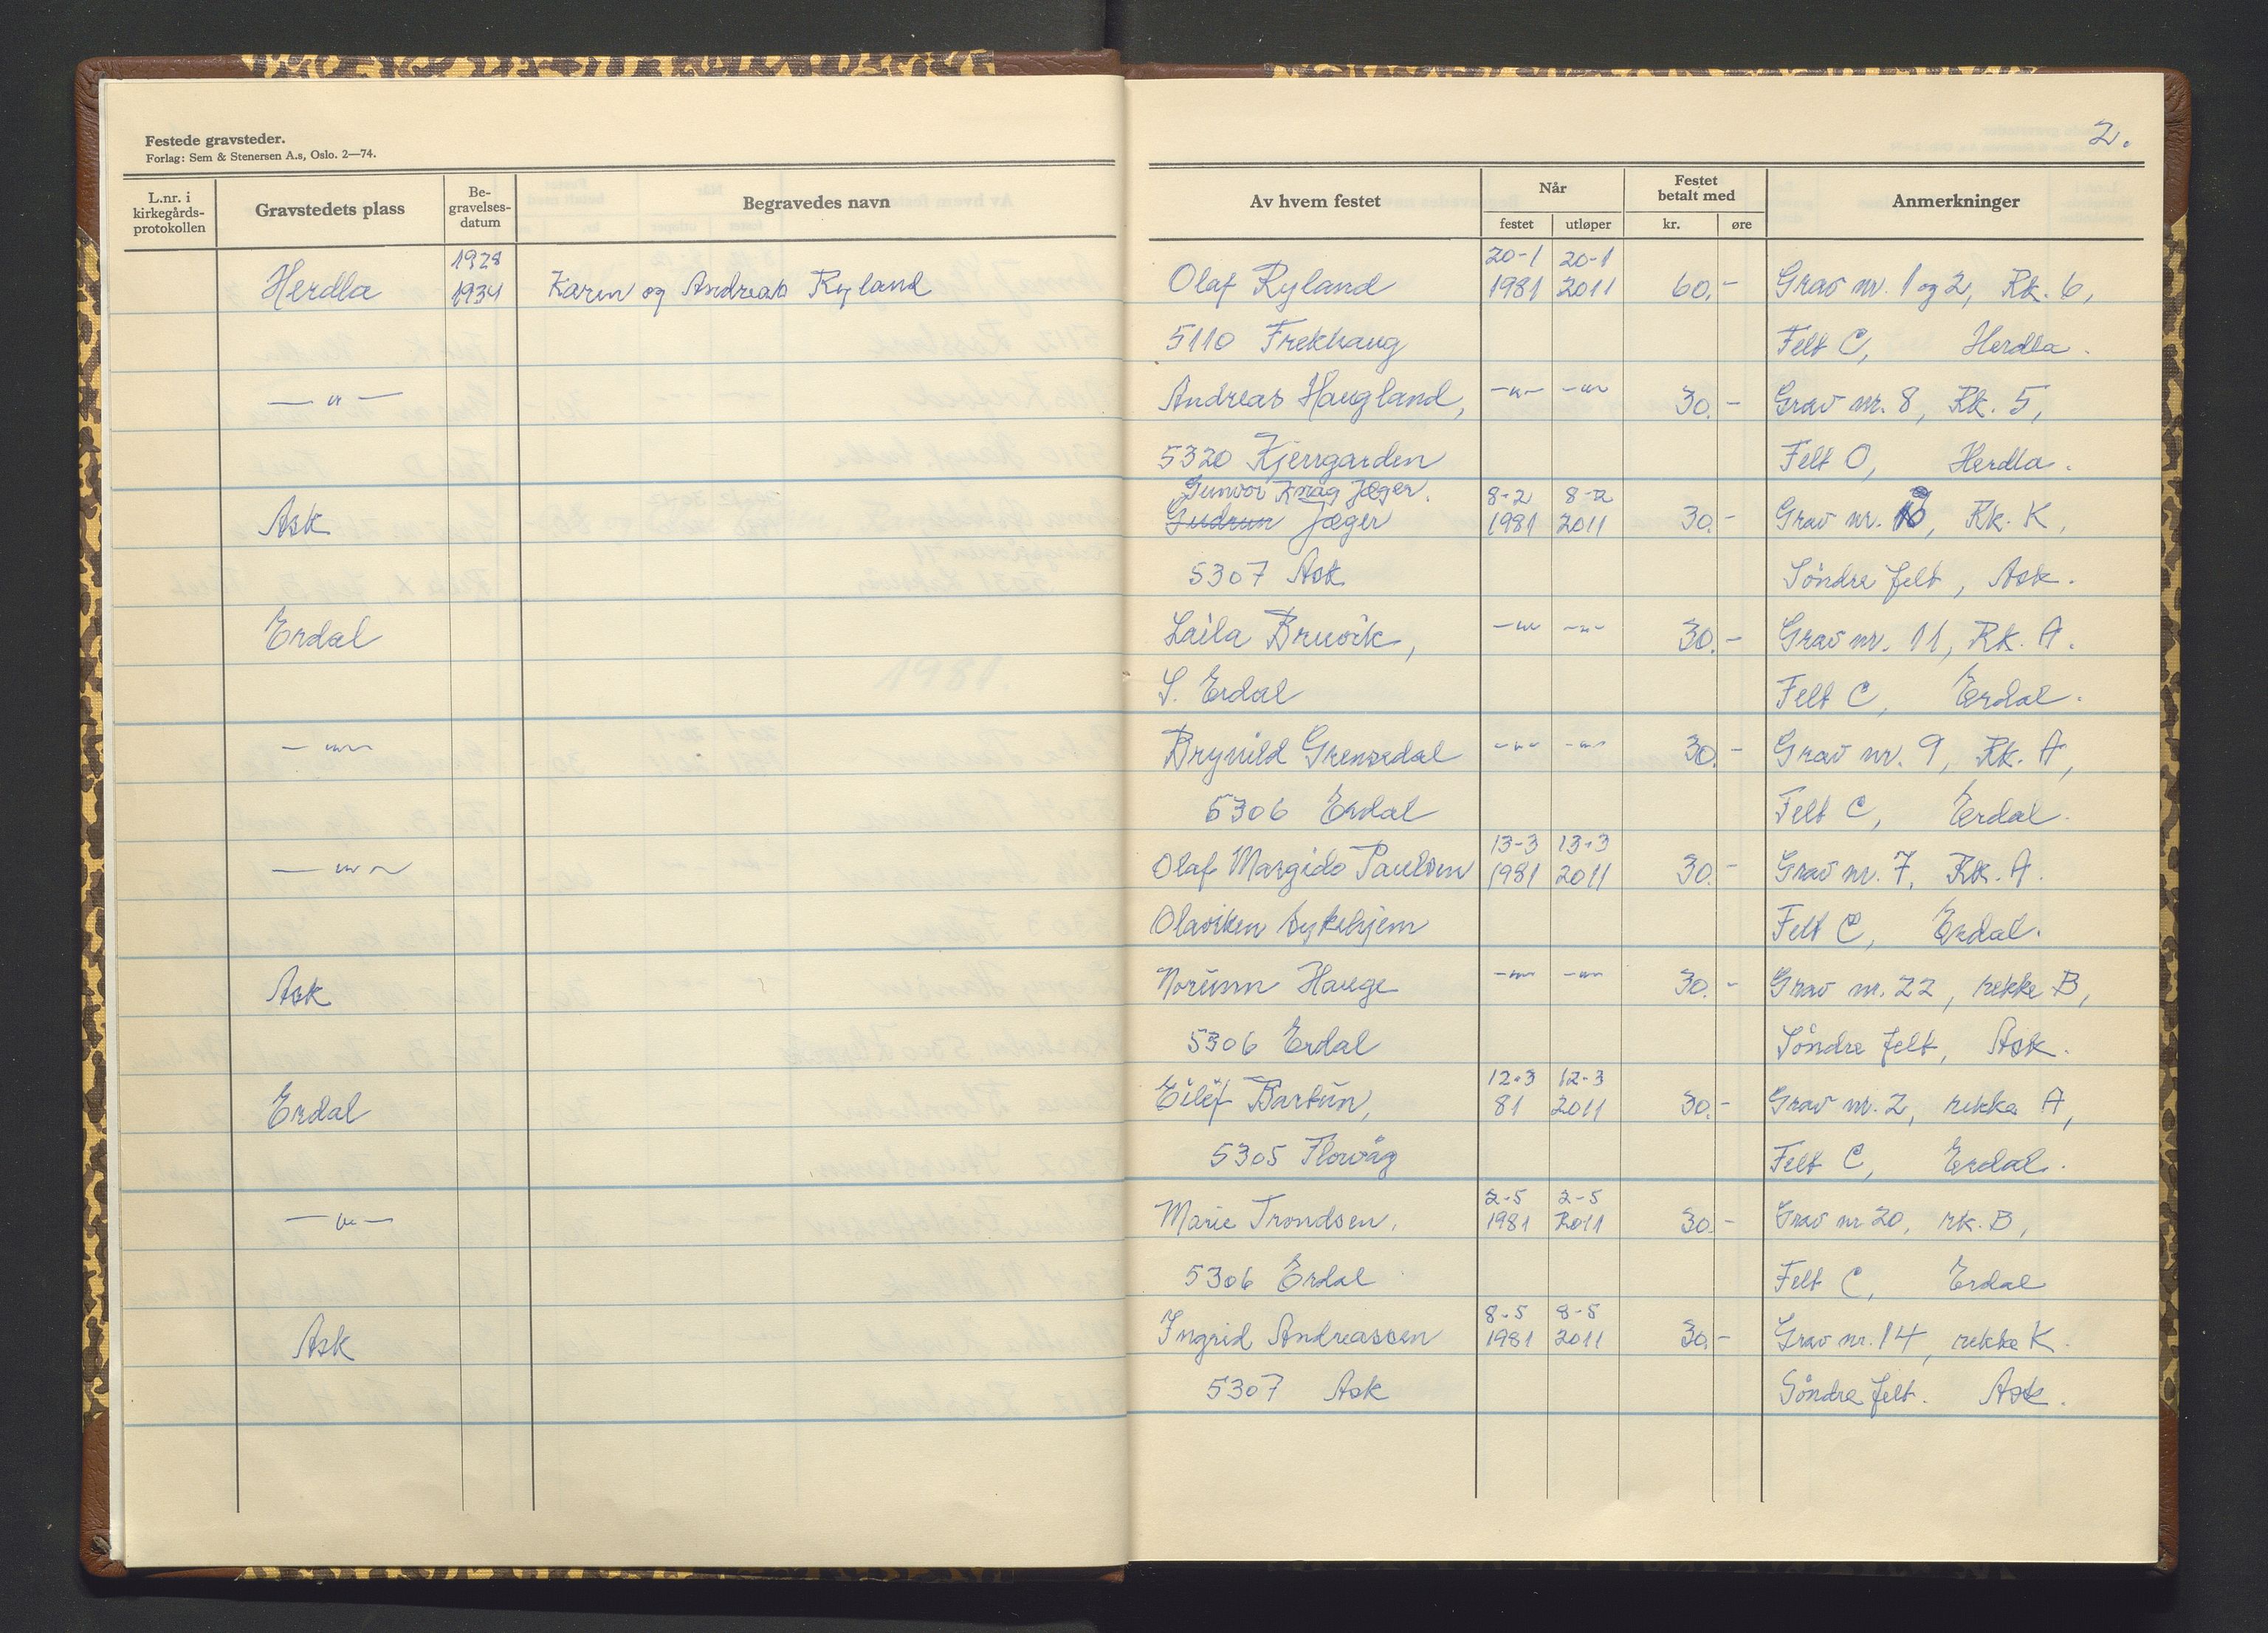 Festede gravsteder.
Forlag: Sem & Stenersen A.s, Oslo. 2—74.
L.nr. i kirkegårds-protokollen
Gravstedets plass
Be-gravelses-datum
Begravedes navn
2.
Av hvem festet
Når
festet utløper
Festet betalt med
kr. øre
Anmerkninger
1928 20-1 20-1
Herdla 1934 Karen og Andreas Ryland Olaf Ryland 1981 2011 60,- Grav nr. 1 og 2, Rk. 6,
5110 Frekhaug Felt C, Herdla.
— " — Andreas Haugland, -"- -"- 30,- Grav nr. 8, Rk. 5,
5320 Kjerrgarden Felt O, Herdla.
Gunvor Knag Jæger. 8-2 8-2
Ask Gudrun Jæger 1981 2011 30,- Grav nr. Rk. K,
5307 Ask Söndre felt, Ask.
Erdal Laila Bruvik, -"- -"- 30,- Grav nr. 11, Rk. A.
S. Erdal Felt C, Erdal.
-"- Brynild Grensedal -"- -"- 30,- Grav nr. 9, Rk. A,
5306 Erdal Felt C, Erdal.
13-3 13-3
-"- Olaf Margido Paulsen 1981 2011 30,- Grav nr. 7, Rk. A.
Olaviken sykehjem Felt C, Erdal.
Ask Norunn Hauge -"- -"- 30,- Grav nr. 22, rekke B,
5306 Erdal Söndre felt, Ask.
12-3 12-3
Erdal Eilef Bartun, 81 2011 30,- Grav nr. 2, rekke A,
5305 Florvåg Felt C, Erdal.
2-5 2-5
-"- Marie Trondsen, 1981 2011 30,- Grav nr 20, rk. B,
5306 Erdal Felt C, Erdal
8-5 8-5
Ask Ingrid Andreassen 1981 2011 30,- Grav nr. 14, rekke K.
5307 Ask Söndre felt. Ask.